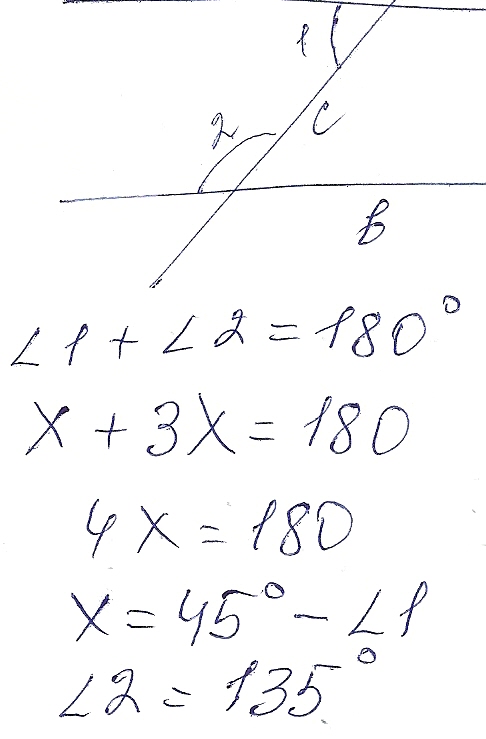 1
2
C
B
∠1 + ∠2 = 180°
X + 3X = 180
4X = 180
X = 45° - ∠1
∠2 = 135°